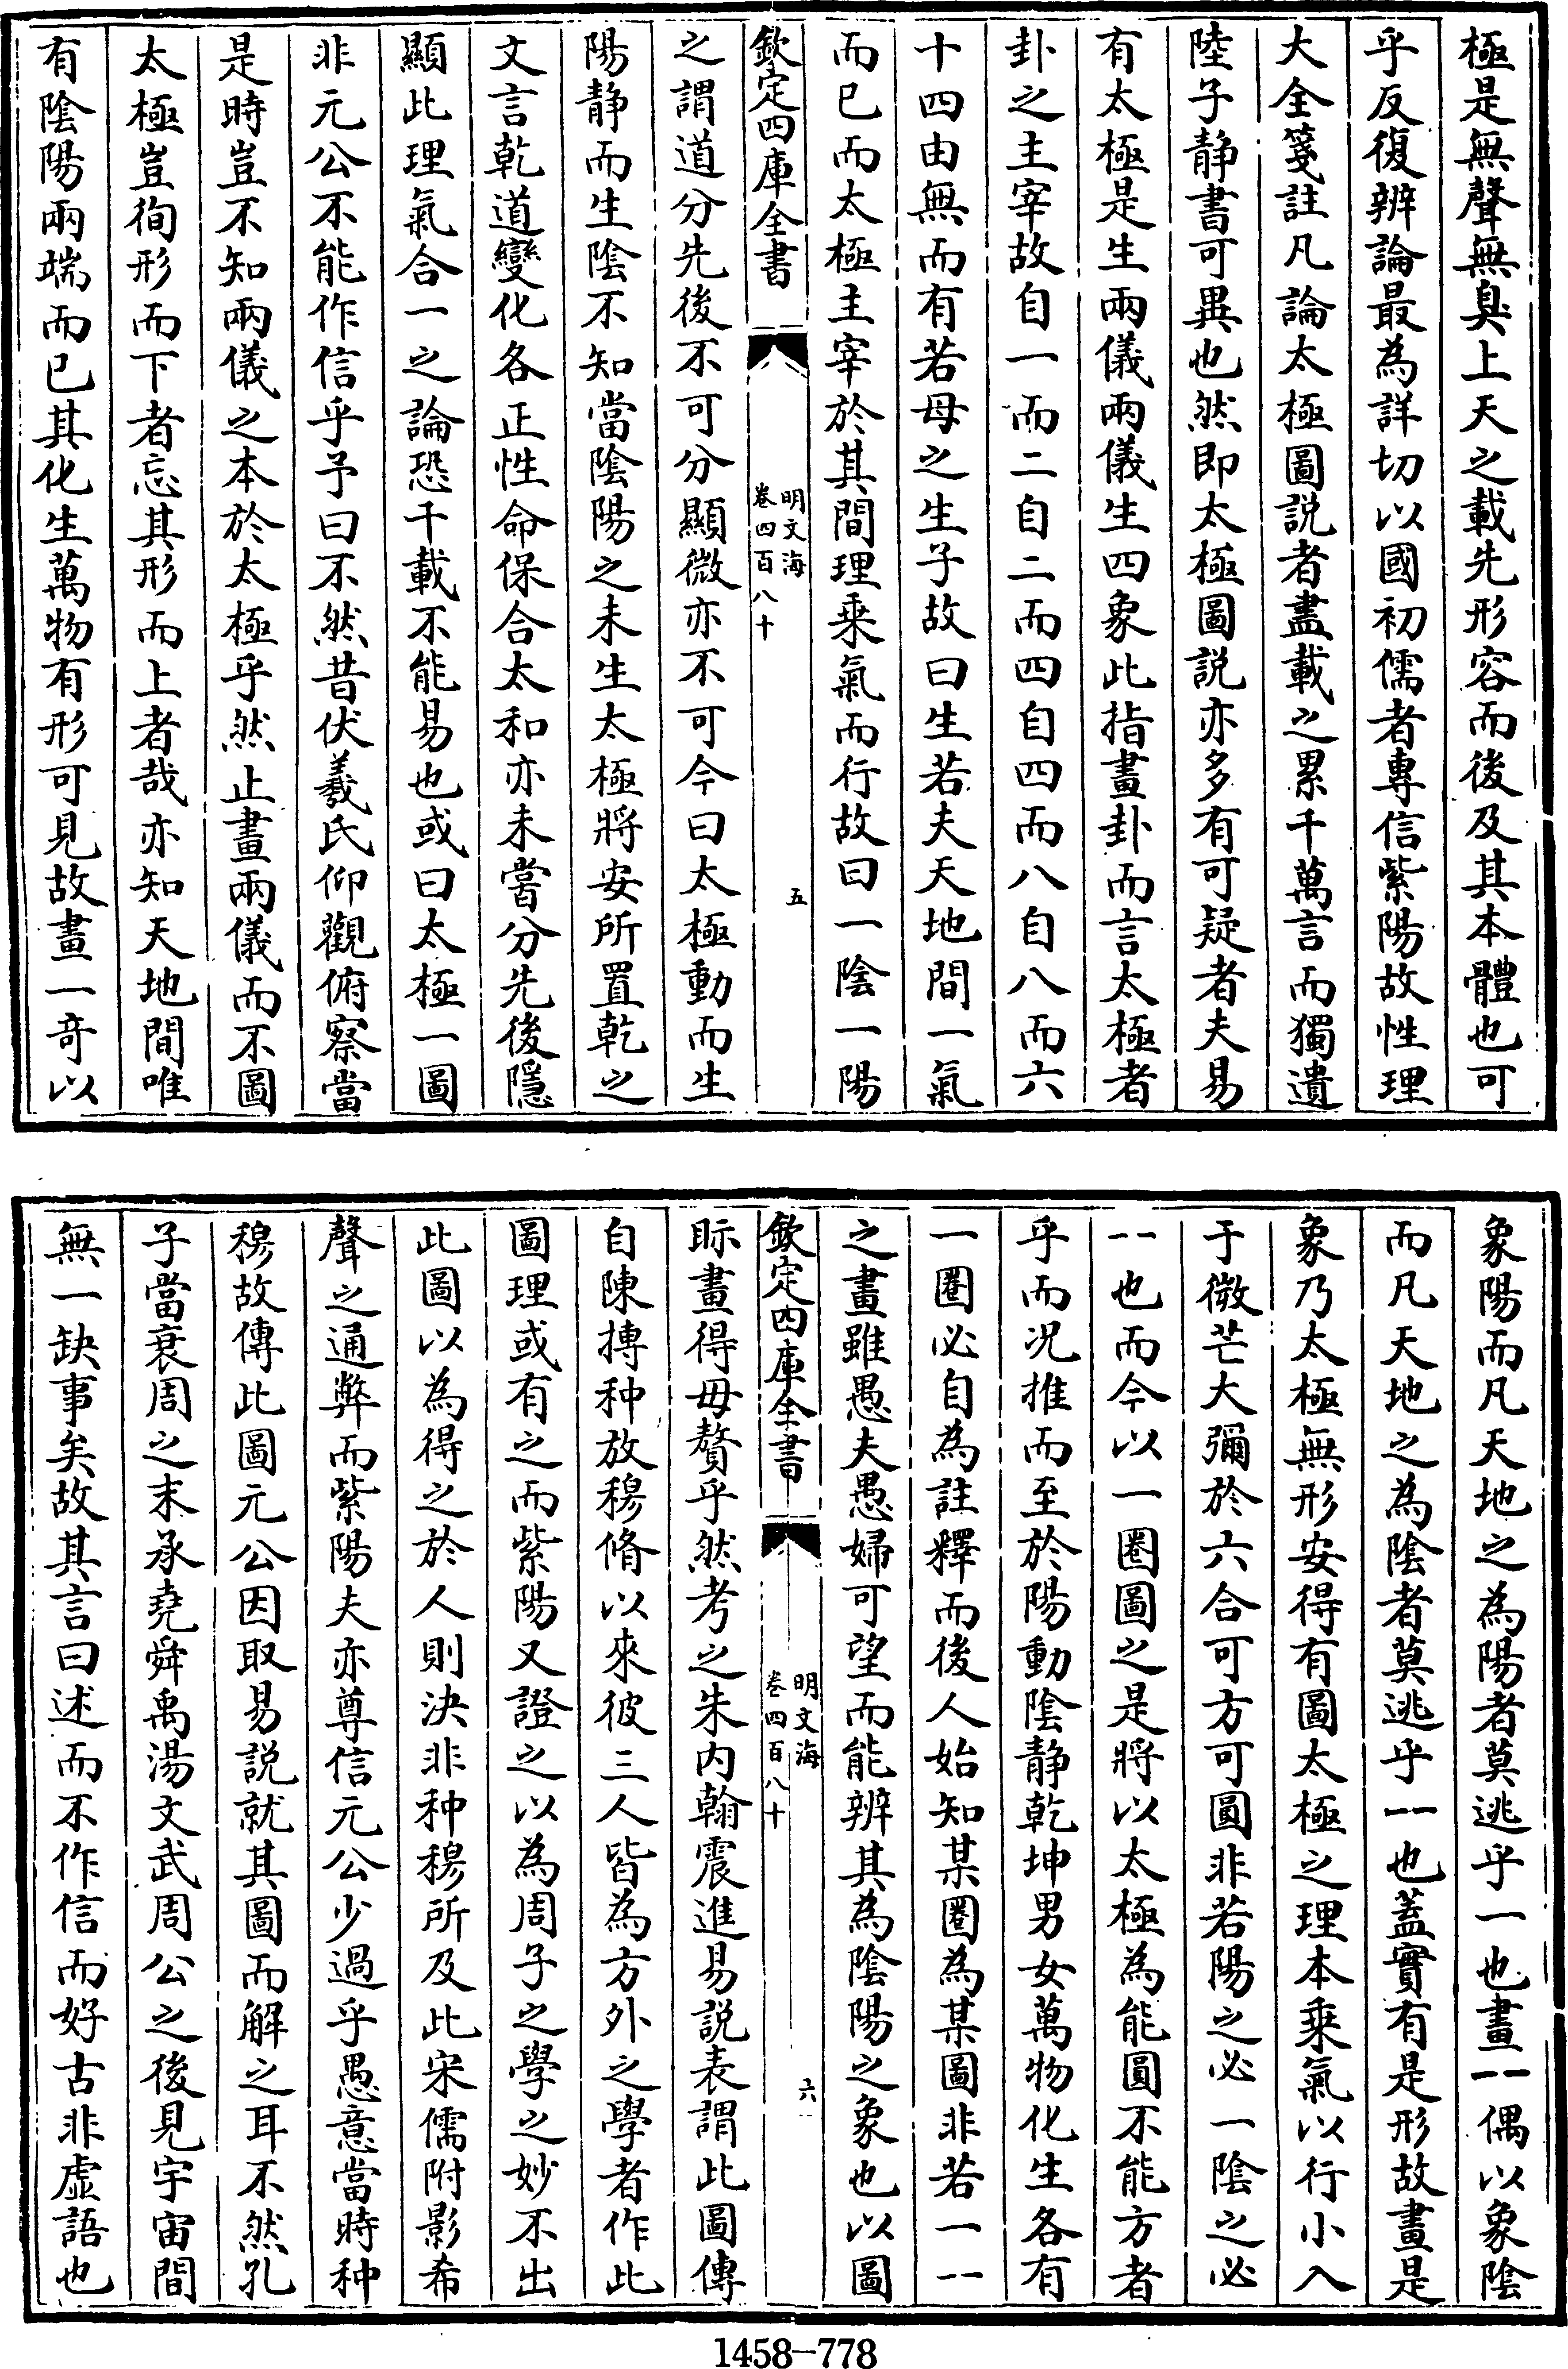 極是無聲無臭上天之載先形容而後及其本體也可
乎反復辨論最為詳切以國初儒者專信紫陽故性理
大全箋註凡論太極圖説者盡載之累千萬言而獨遺
陸子静書可異也然即太極圖説亦多有可疑者夫易
有太極是生兩儀兩儀生四象此指畫卦而言太極者
卦之主宰故自一而二自二而四自四而八自八而六
十四由無而有若母之生子故曰生若夫天地間一氣
而已而太極主宰於其間理乗氣而行故曰一陰一陽
欽定四庫全書
明文海
卷四百八十
五
之謂道分先後不可分顯微亦不可今曰太極動而生
陽静而生陰不知當陰陽之未生太極將安所置乾之
文言乾道變化各正性命保合太和亦未嘗分先後隱
顯此理氣合一之論恐千載不能易也或曰太極一圖
非元公不能作信乎予曰不然昔伏羲氏仰觀俯察當
是時豈不知兩儀之本於太極乎然止畫兩儀而不圖
太極豈徇形而下者忘其形而上者哉亦知天地間唯
有陰陽兩端而已其化生萬物有形可見故畫一奇以
象陽而凡天地之為陽者莫逃乎一也畫--偶以象陰
而凡天地之為陰者莫逃乎--也蓋實有是形故畫是
象乃太極無形安得有圖太極之理本乗氣以行小入
于微芒大彌於六合可方可圓非若陽之必一陰之必
--也而今以一圏圖之是將以太極為能圓不能方者
乎而况推而至於陽動陰静乾坤男女萬物化生各有
一圏必自為註釋而後人始知某圏為某圖非若一--
之畫雖愚夫愚婦可望而能辨其為陰陽之象也以圖
欽定四庫全書
明文海
卷四百八十
六
眎畫得毋贅乎然考之朱内翰震進易説表謂此圖傳
自陳摶种放穆脩以來彼三人皆為方外之學者作此
圖理或有之而紫陽又證之以為周子之學之妙不出
此圖以為得之於人則決非种穆所及此宋儒附影希
聲之通弊而紫陽夫亦尊信元公少過乎愚意當時种
穆故傳此圖元公因取易説就其圖而解之耳不然孔
子當衰周之末承堯舜禹湯文武周公之後見宇宙間
無一缺事矣故其言曰述而不作信而好古非虚語也
1458-778